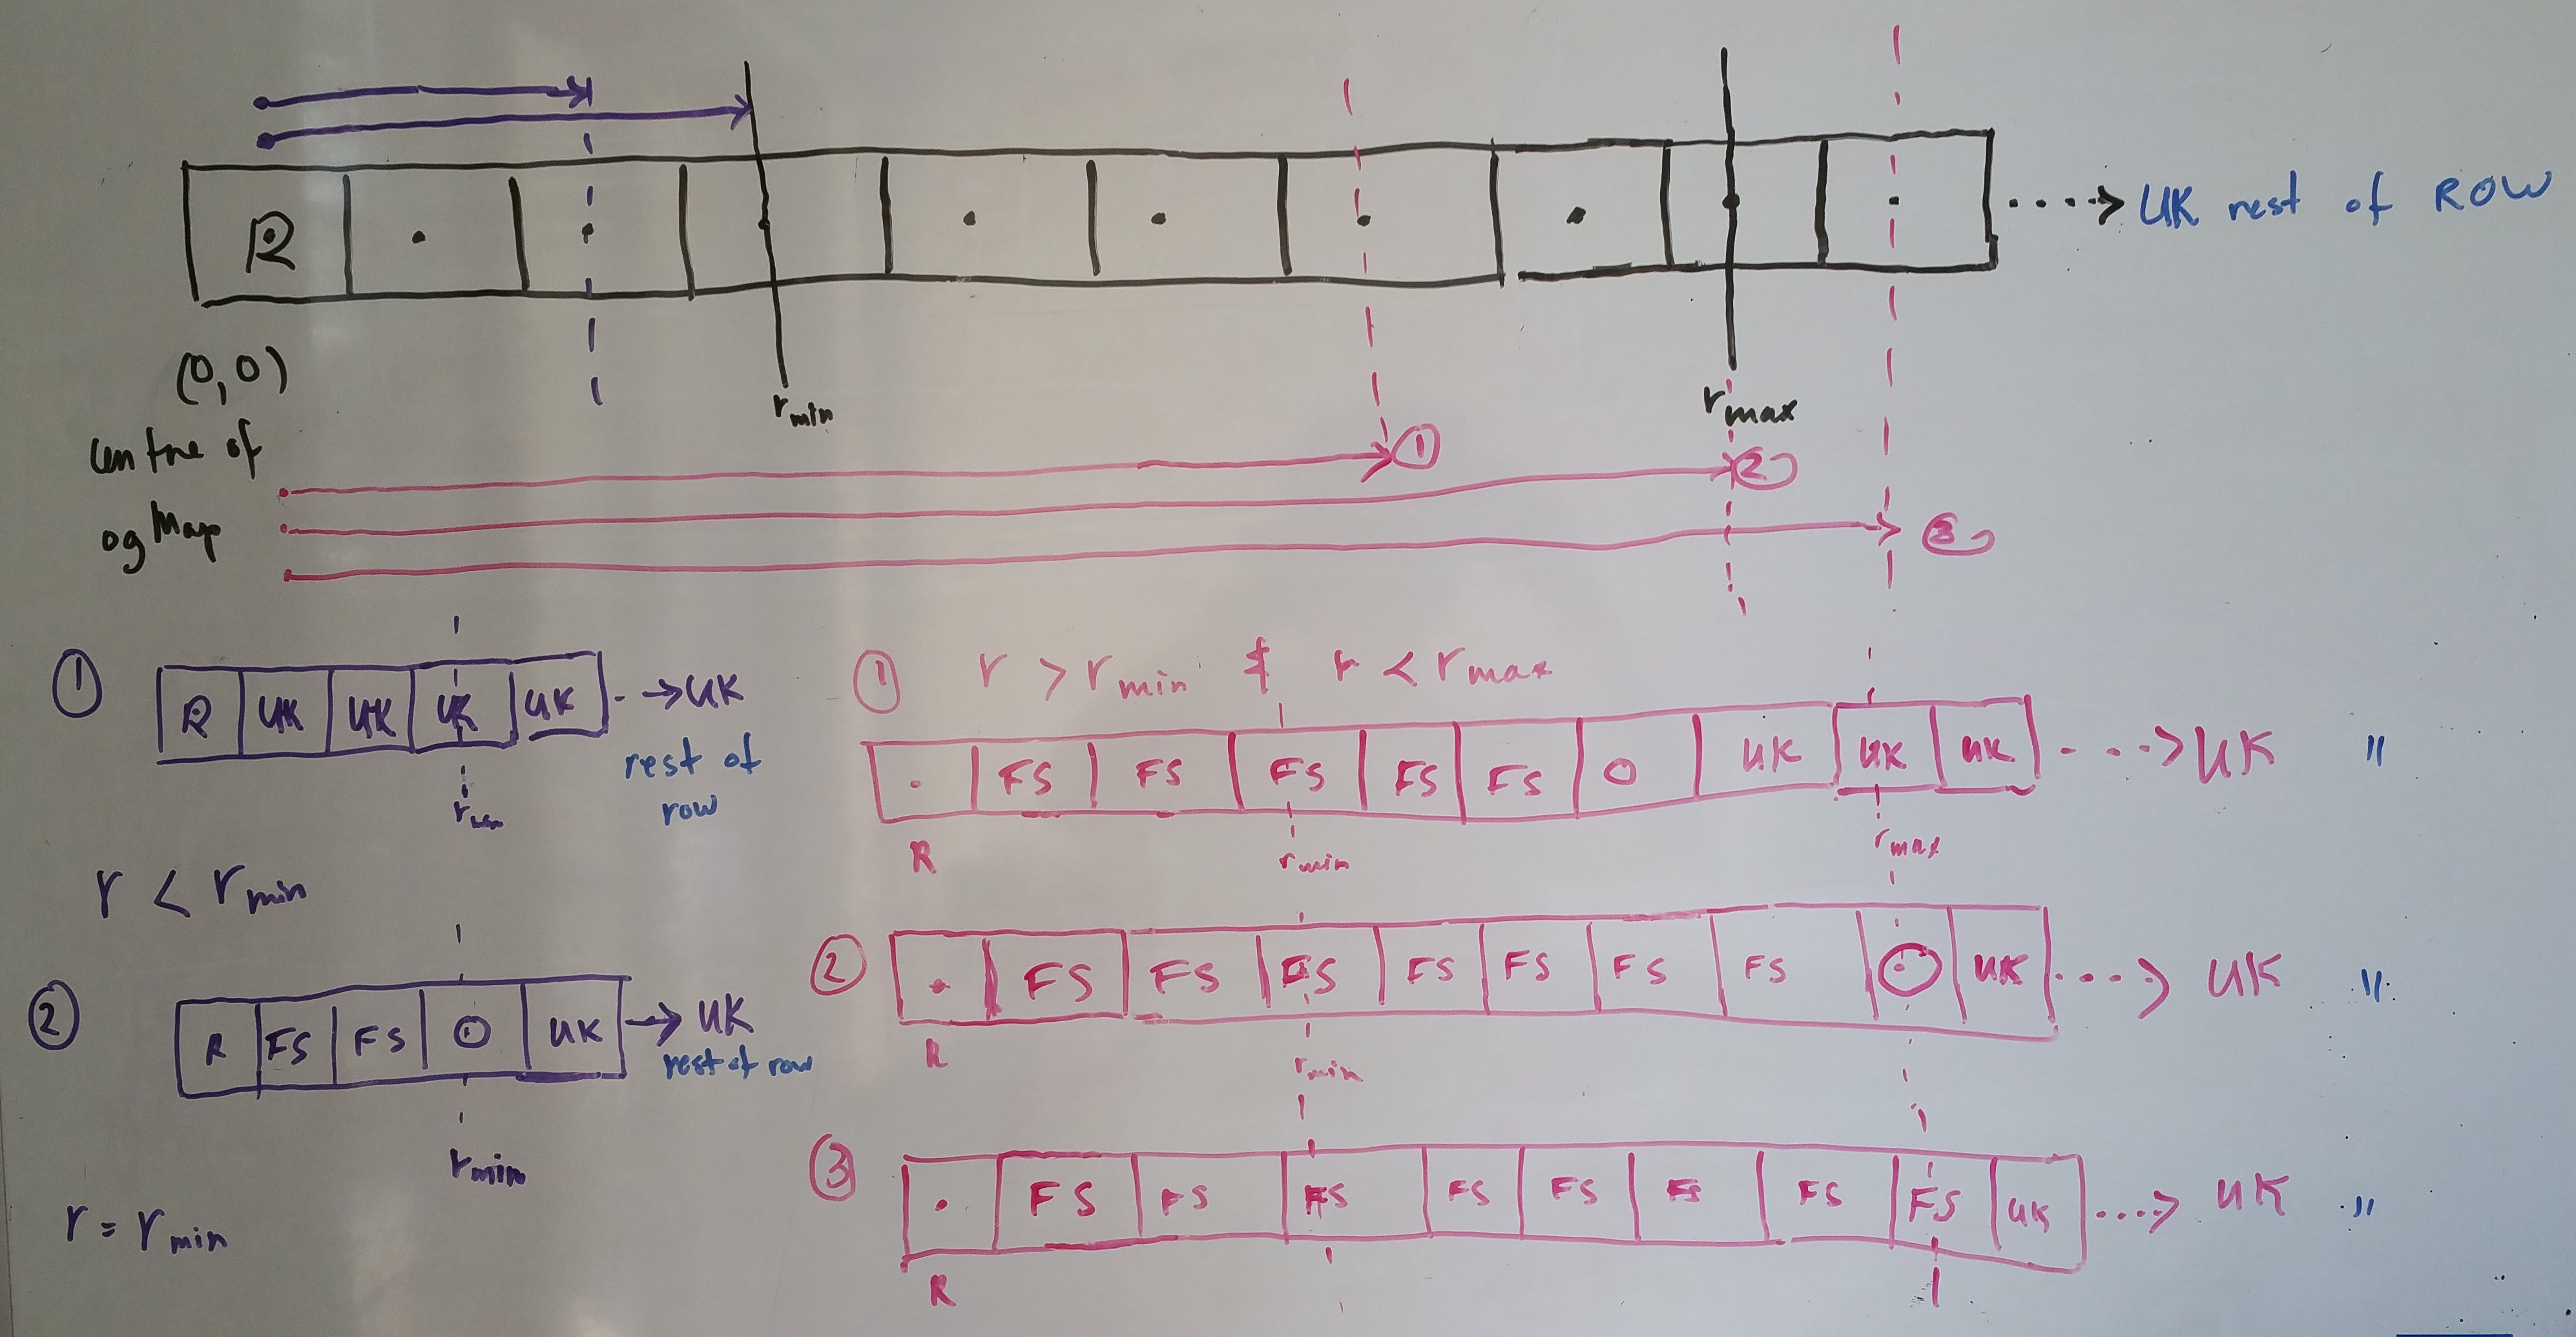 R
UK rest of ROW
(0,0)
Centre of
og Map
rmin
rmax
①
②
③
① R UK UK UK UK → UK
rest of
row
r < rmin
② R FS FS O UK → UK
rest of row
rmin
r = rmin
① r > rmin & r < rmax
FS FS FS FS FS O UK UK UK → UK "
R
rmin
rmax
② FS FS FS FS FS FS FS O UK → UK "
R
rmin
③ FS FS FS FS FS FS FS FS UK → UK "
R